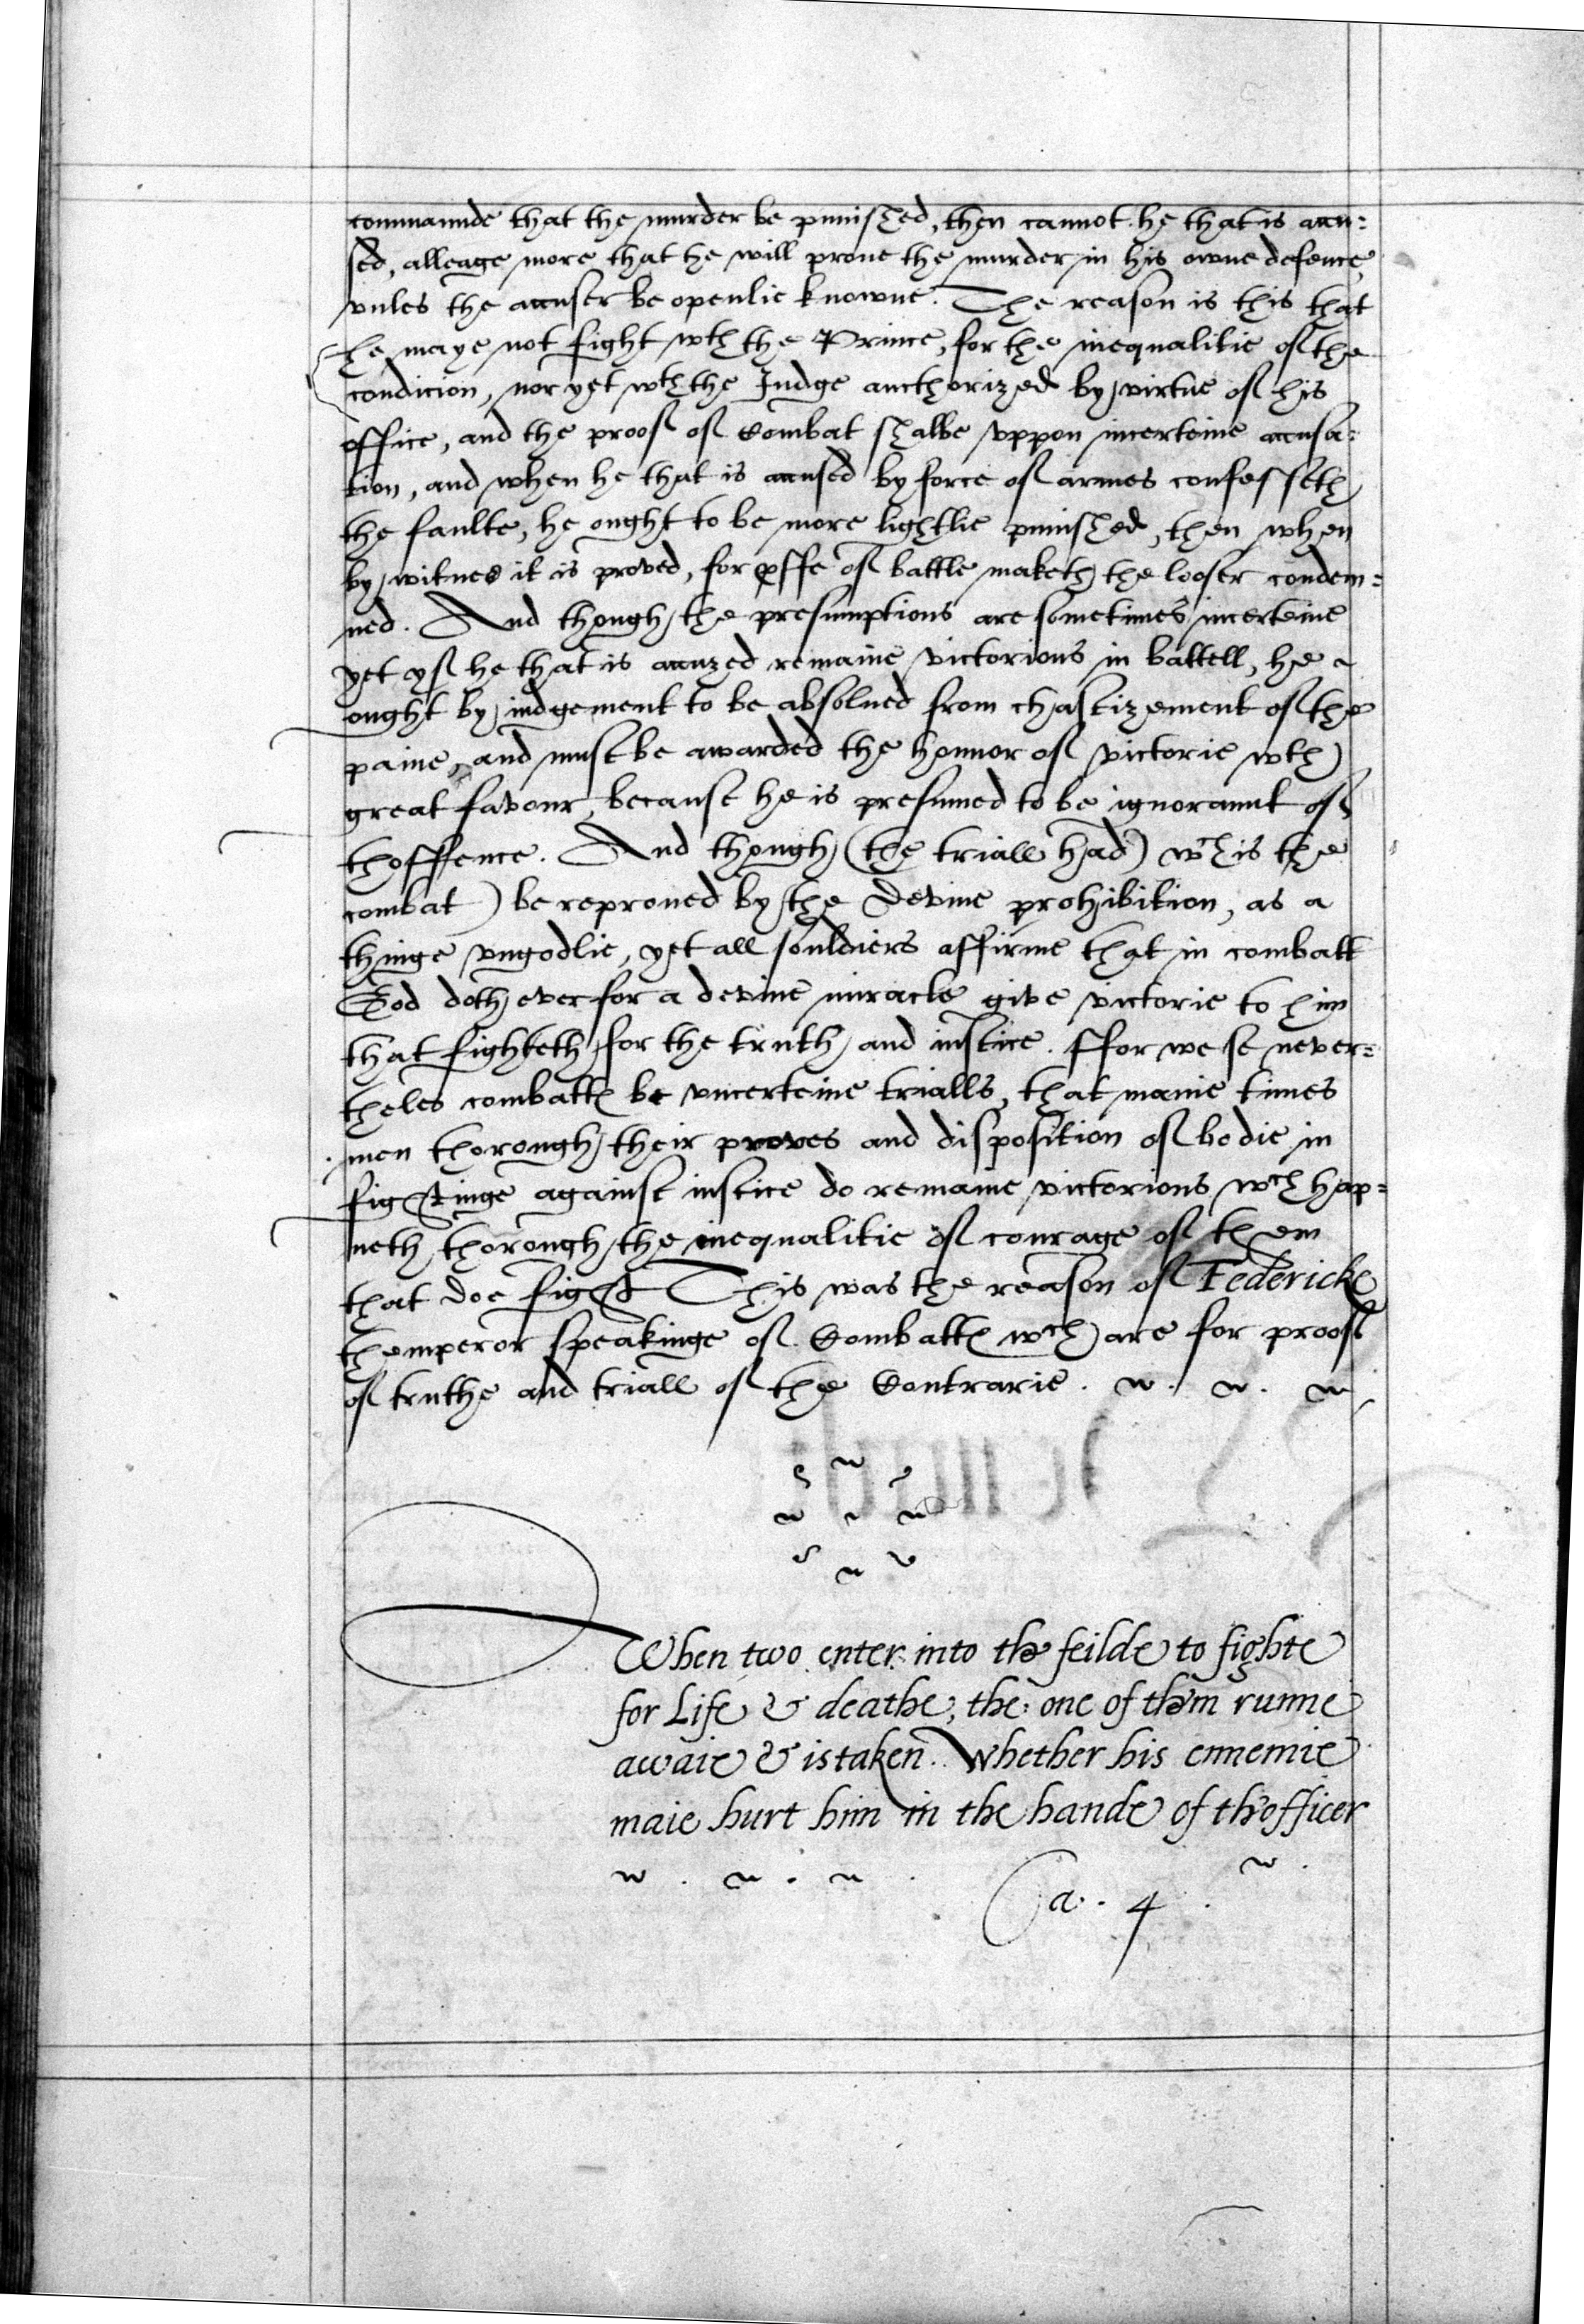 commaunde that the murder be punished, then cannot he that is accu=
sed, alleage more that he will proue the murder in his owne defence,
vnles the accuser be openlie knowne. The reason is this that
he maye not fight wth the Prince, for the inequalitie of the
condicion, nor yet wth the Judge aucthorized by virtue of his
office, and the proof of Combat shalbe vppon incerteine accusa=
tion, and when he that is accused by force of armes confesseth
the faulte, he ought to be more lightlie punished, then when
by witnes it is proved, for of battle maketh the looser condem=
ned. And though the presumptions are sometimes incerteine
yet yf he that is accuzed remaine victorious in battell, he
ought by iudgement to be absolued from chastizement of the
paine, and must be awarded the honnor of victorie wth
great favour, because he is presumed to be ignoraunt of
thoffence. And though (the triall had) wch is the
combat) be reproued by the Devine prohibition, as a
thinge vngodlie, yet all souldiers affirme that in combatt
God doth ever for a devine miracle give victorie to him
that fighteth for the truth and iustice. Ffor we se never=
theles combattes be vncerteine trialls, that manie times
men thorough their proves and disposition of bodie in
fightinge against iustice do remaine victorious wch hap=
neth thorough the inequalitie of courage of them
that doe fight This was the reason of Federicke
themperor speakinge of Combattes wch are for proof
of truthe and triall of the Contrarie.
When two enter into the feilde to fighte
for Life & deathe, the one of them runne
awaie & is taken. Whether his ennemie
maie hurt him in the hande of th'officer
Ca. 4